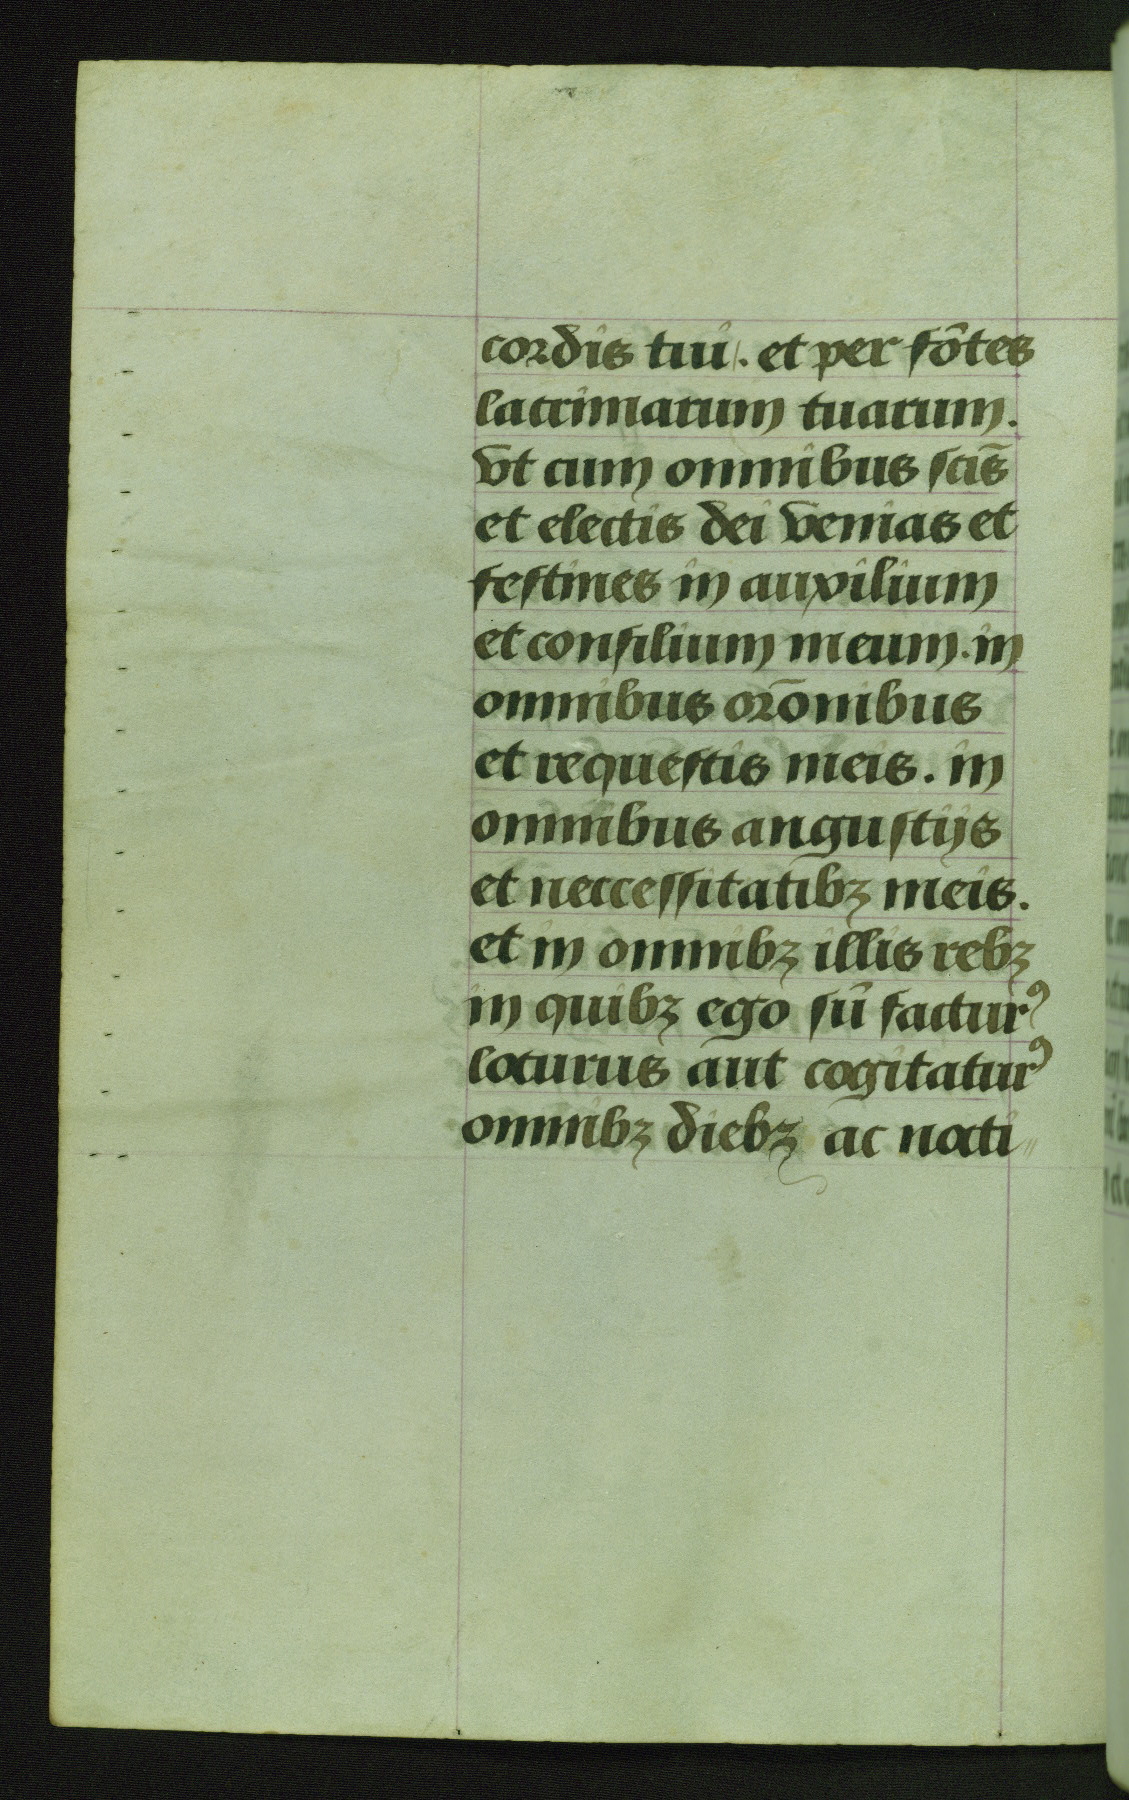 cordis tui. et per fōtes
lacrimarum tuarum.
vt cum omnibus sc̄is
et electis dei venias et
festines in auxilium
et consilium meum. in
omnibus or̄onibus
et requestis meis. in
omnibus angustijs
et neccessitatibꝫ meis.
et in omnibꝫ illis rebꝫ
in quibꝫ ego sū facturꝰ
locturus aut cogitaturꝰ
omnibꝫ diebꝫ ac nocti